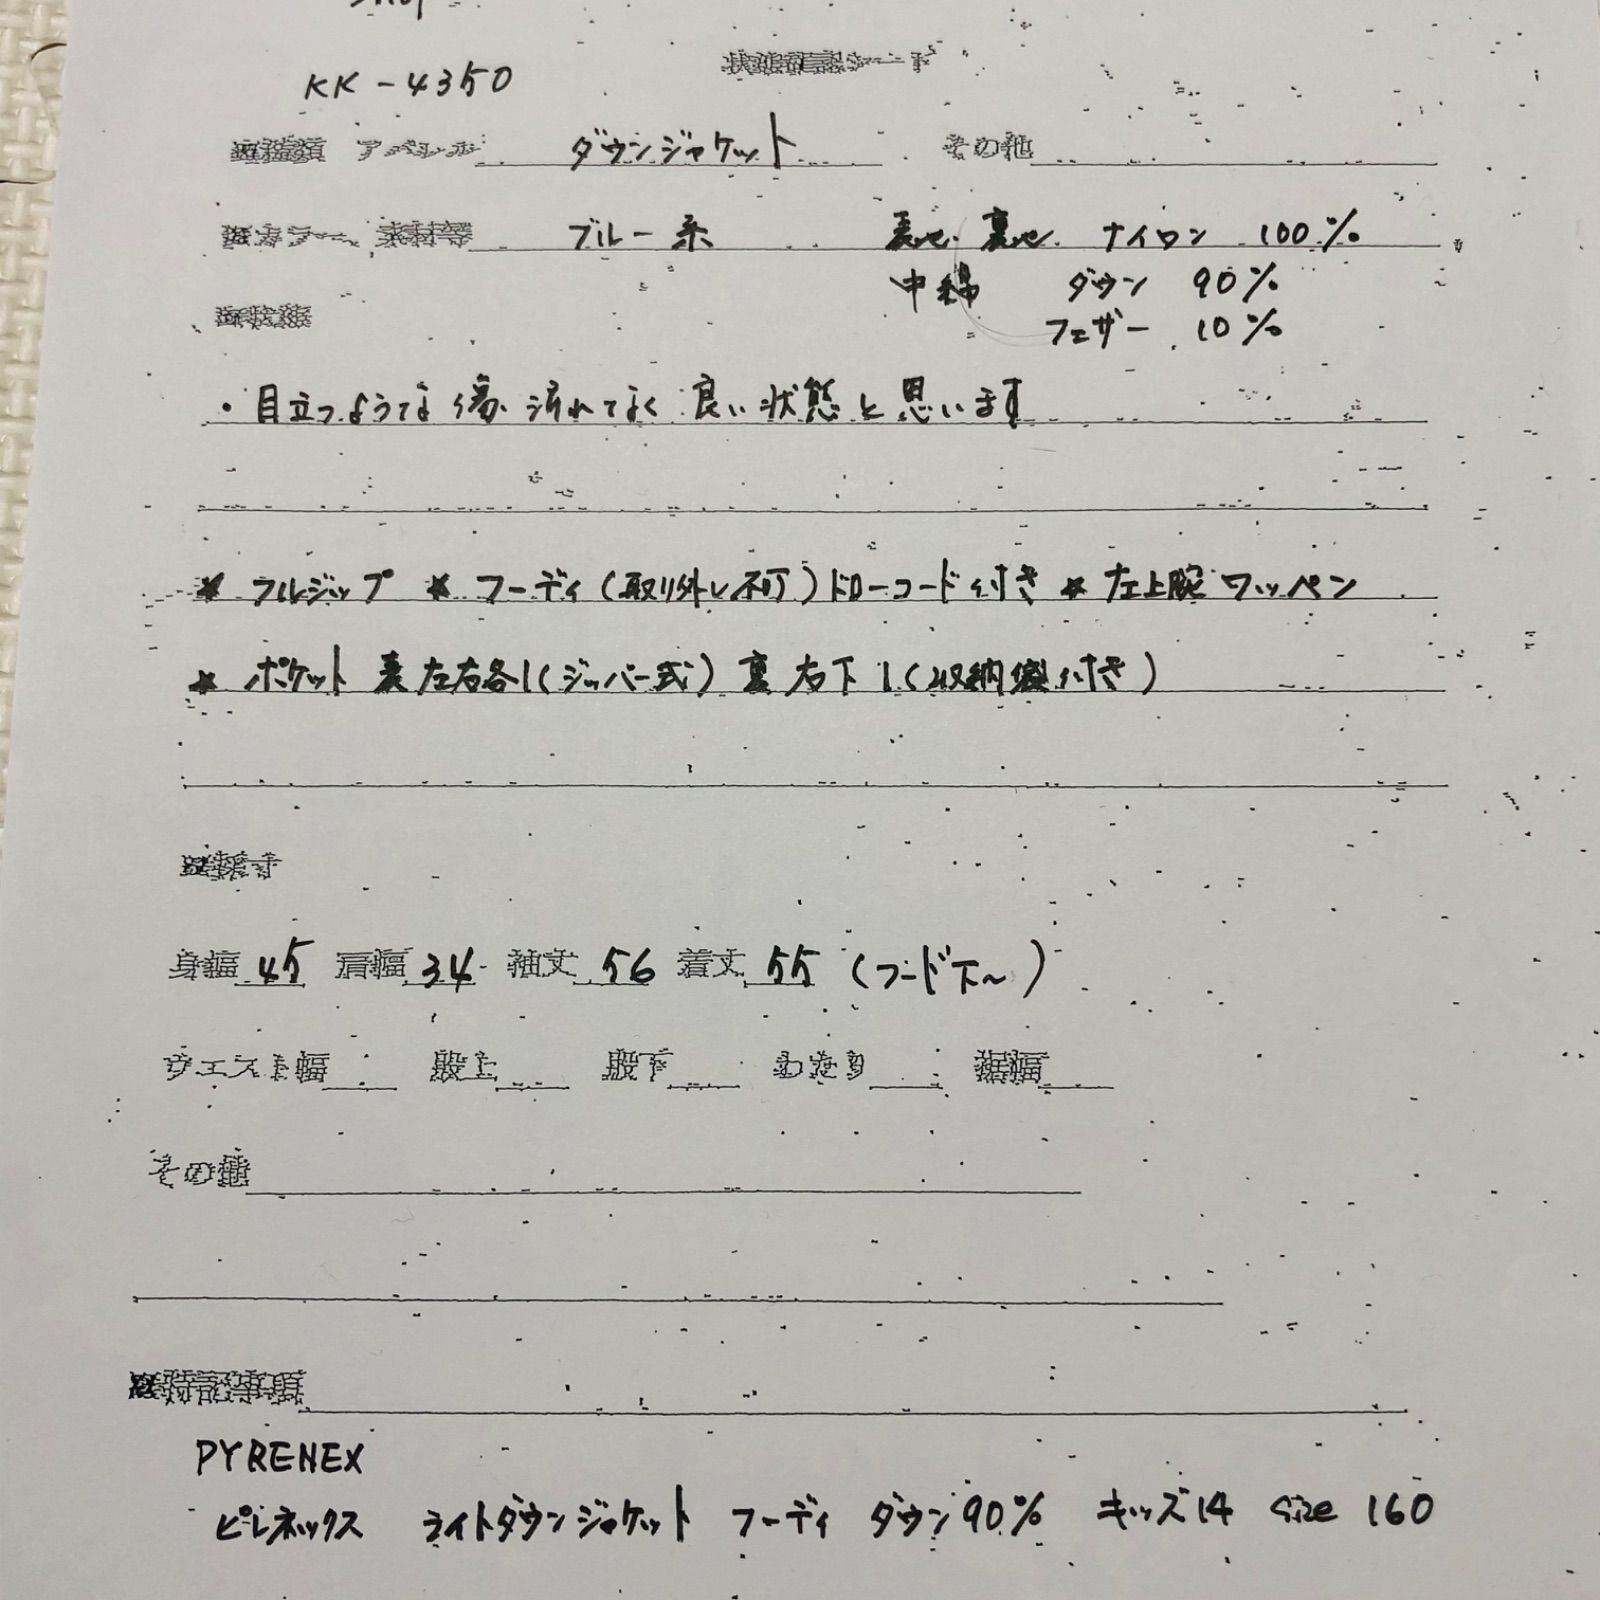 KK-4350
状態確認シート
■種類 アパレル ダウンジャケット その他
■カラー、素材等 ブルー系 表地、裏地 ナイロン 100%
中綿 ダウン 90%
フェザー 10%
■状態
・目立つような傷、汚れてなく良い状態と思います
* フルジップ * フーディ(取り外し不可)ドローコード付き * 左上腕ワッペン
* ポケット 表左右各1(ジッパー式) 裏右下1(収納袋付き)
■採寸
身幅 45 肩幅 34 袖丈 56 着丈 55 (フード下~)
ウエスト幅 股上 股下 わたり 裾幅
その他
■特記事項
PYRENEX
ピレネックス ライトダウンジャケット フーディ ダウン90% キッズ14 size 160